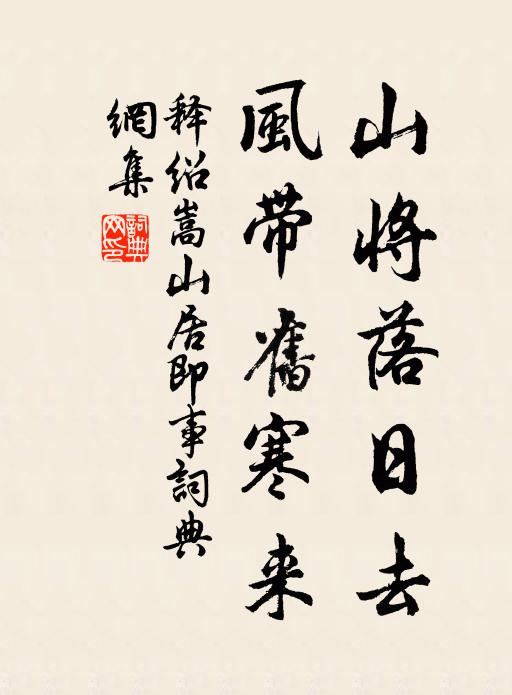 山将落日去
風帶舊寒来
释绍嵩山居即事詞典
網集
詞典網印